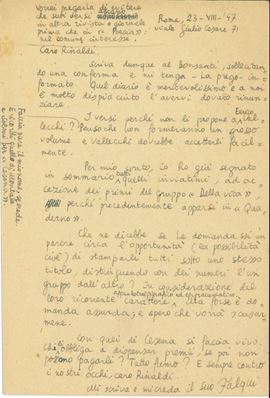 Vorrei pregarla di evitare
che suoi versi escano
in altra rivista o giornale
prima che in "Poesia":
nel comune interesse.
Roma, 23-VIII-'47
viale Giulio Cesare 71
Caro Rinaldi
scriva dunque al Bonsanti, sollecitan
do una conferma e mi tenga - La prego - in
formato. Quel diario è meritevolissimo e a me
è molto dispiaciuto l'avervi dovuto rinun
ziare.
I versi perché non li propone a Val
lecchi? Penso che non formeranno un grosso
volume e Vallecchi dovrebbe accettarli facil
mente.
Per mio conto, io ho qui segnato
in sommario tutti quelli inviatimi ad ec
cezione dei primi del gruppo "Della vita"
perché precedentemente apparsi in "Qua
derno".
Che ne direbbe se Le domandassi un
parere circa l'opportunità (e la possibilità
cioè) di stamparli tutti sotto uno stesso
titolo, distinguendo con dei numeri l'un
gruppo dall'altro? In considerazione del
loro ricorrente carattere
La forse è do
manda assurda; e spero che vorrà scusar
mene.
Con quei di Cesena si faccia vivo.
Che si obbliga a dispensar premi, se poi non
possono pagarli? Tutto fumo? È sempre contro
i nostri occhi, caro Rinaldi.
Mi scriva e mi creda il suo Falqui
Faccia pure il mio nome, scrivendo
E vice
e "citerne" per "Cesena".